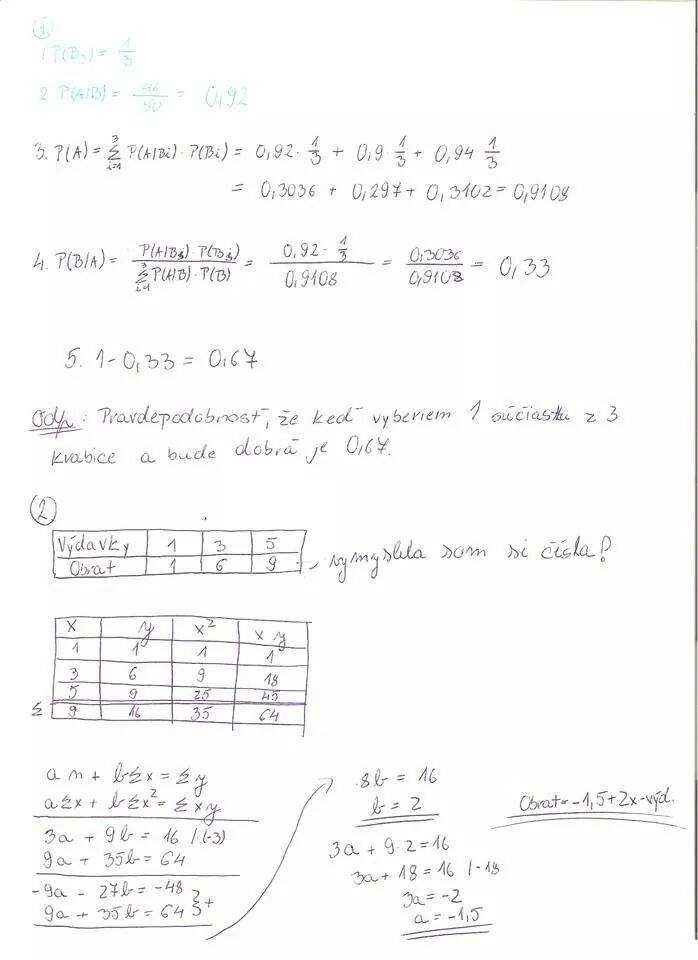 1
1 P(B3) = 1/3
2 P(A/B) = 46/50 = 0,92
3. P(A) = 3 Σ i=1 P(A/Bi) · P(Bi) = 0,92 · 1/3 + 0,9 · 1/3 + 0,94 1/3
= 0,3036 + 0,297 + 0,3102 = 0,9108
4. P(B/A) = P(A/B3) · P(B3) / 3 Σ i=1 P(A/B) · P(B) = 0,92 · 1/3 / 0,9108 = 0,3036/0,9108 = 0,33
5. 1 - 0,33 = 0,67
Odp: Pravdepodobnosť, že keď vyberiem 1 súčiastku z 3
krabice a bude dobrá je 0,67.
2
Výdavky 1 3 5
Obrat 1 6 9 , vymyslela som si čísla!
x y x² xy
1 1 1 1
3 6 9 18
5 9 25 45
Σ 9 16 35 64
an + bΣx = Σy
aΣx + bΣx² = Σxy
3a + 9b = 16 /(-3)
9a + 35b = 64
-9a - 27b = -48
9a + 35b = 64 } +
8b = 16
b = 2
3a + 9·2 = 16
3a + 18 = 16 /-18
3a = -2
a = -1,5
Obrat = -1,5 + 2x - výd.